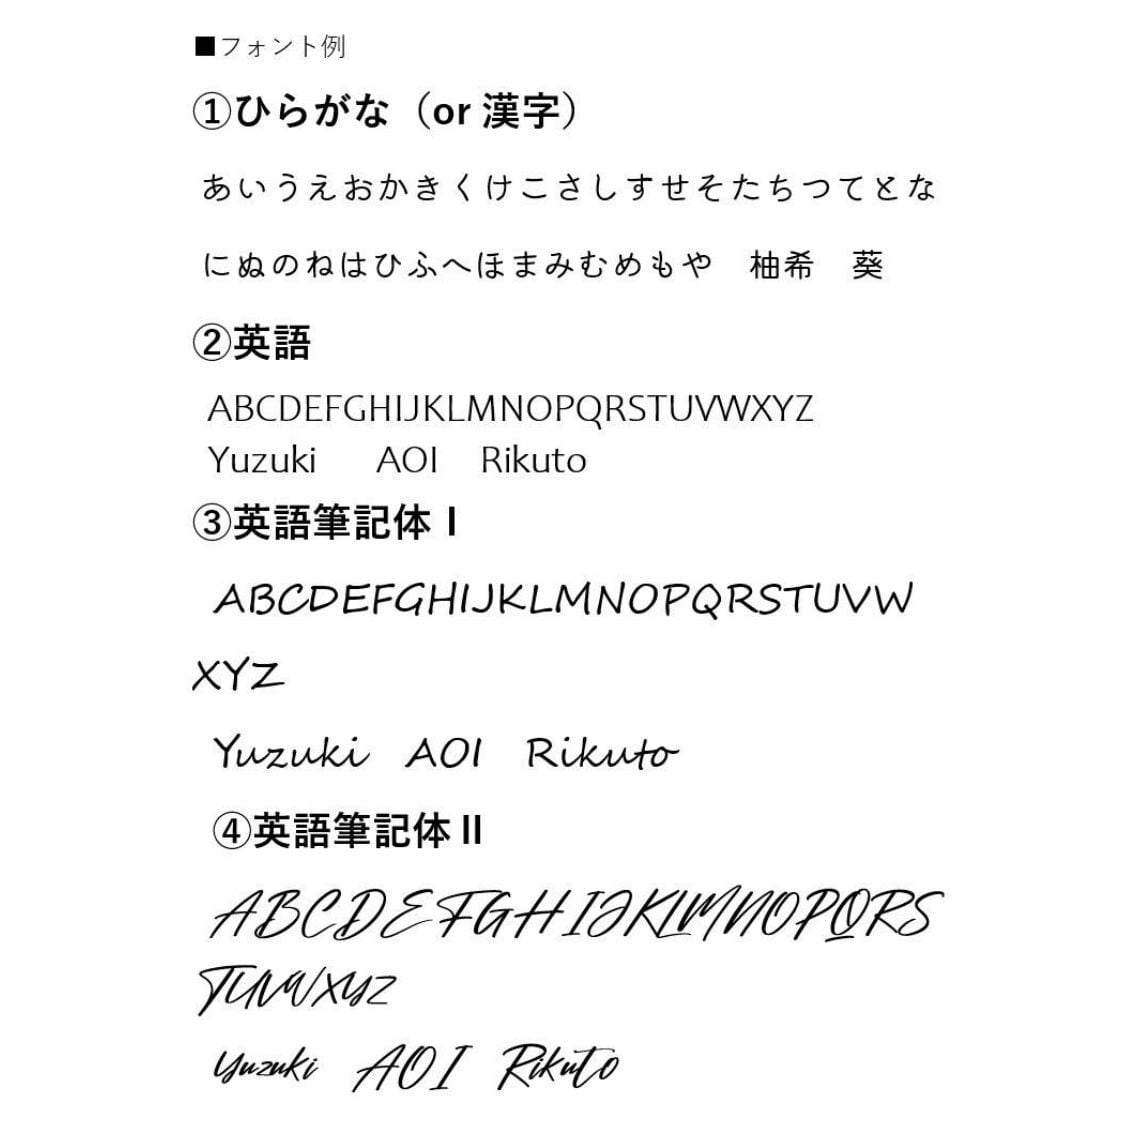 ■フォント例
①ひらがな（or 漢字）
あいうえおかきくけこさしすせそたちつてとな
にぬのねはひふへほまみむめもや　柚希　葵
②英語
ABCDEFGHIJKLMNOPQRSTUVWXYZ
Yuzuki　AOI　Rikuto
③英語筆記体Ⅰ
ABCDEFGHIJKLMNOPQRSTUVW
XYZ
Yuzuki　AOI　Rikuto
④英語筆記体Ⅱ
ABCDEFGHIJKLMNOPQRS
TUVWXYZ
Yuzuki　AOI　Rikuto